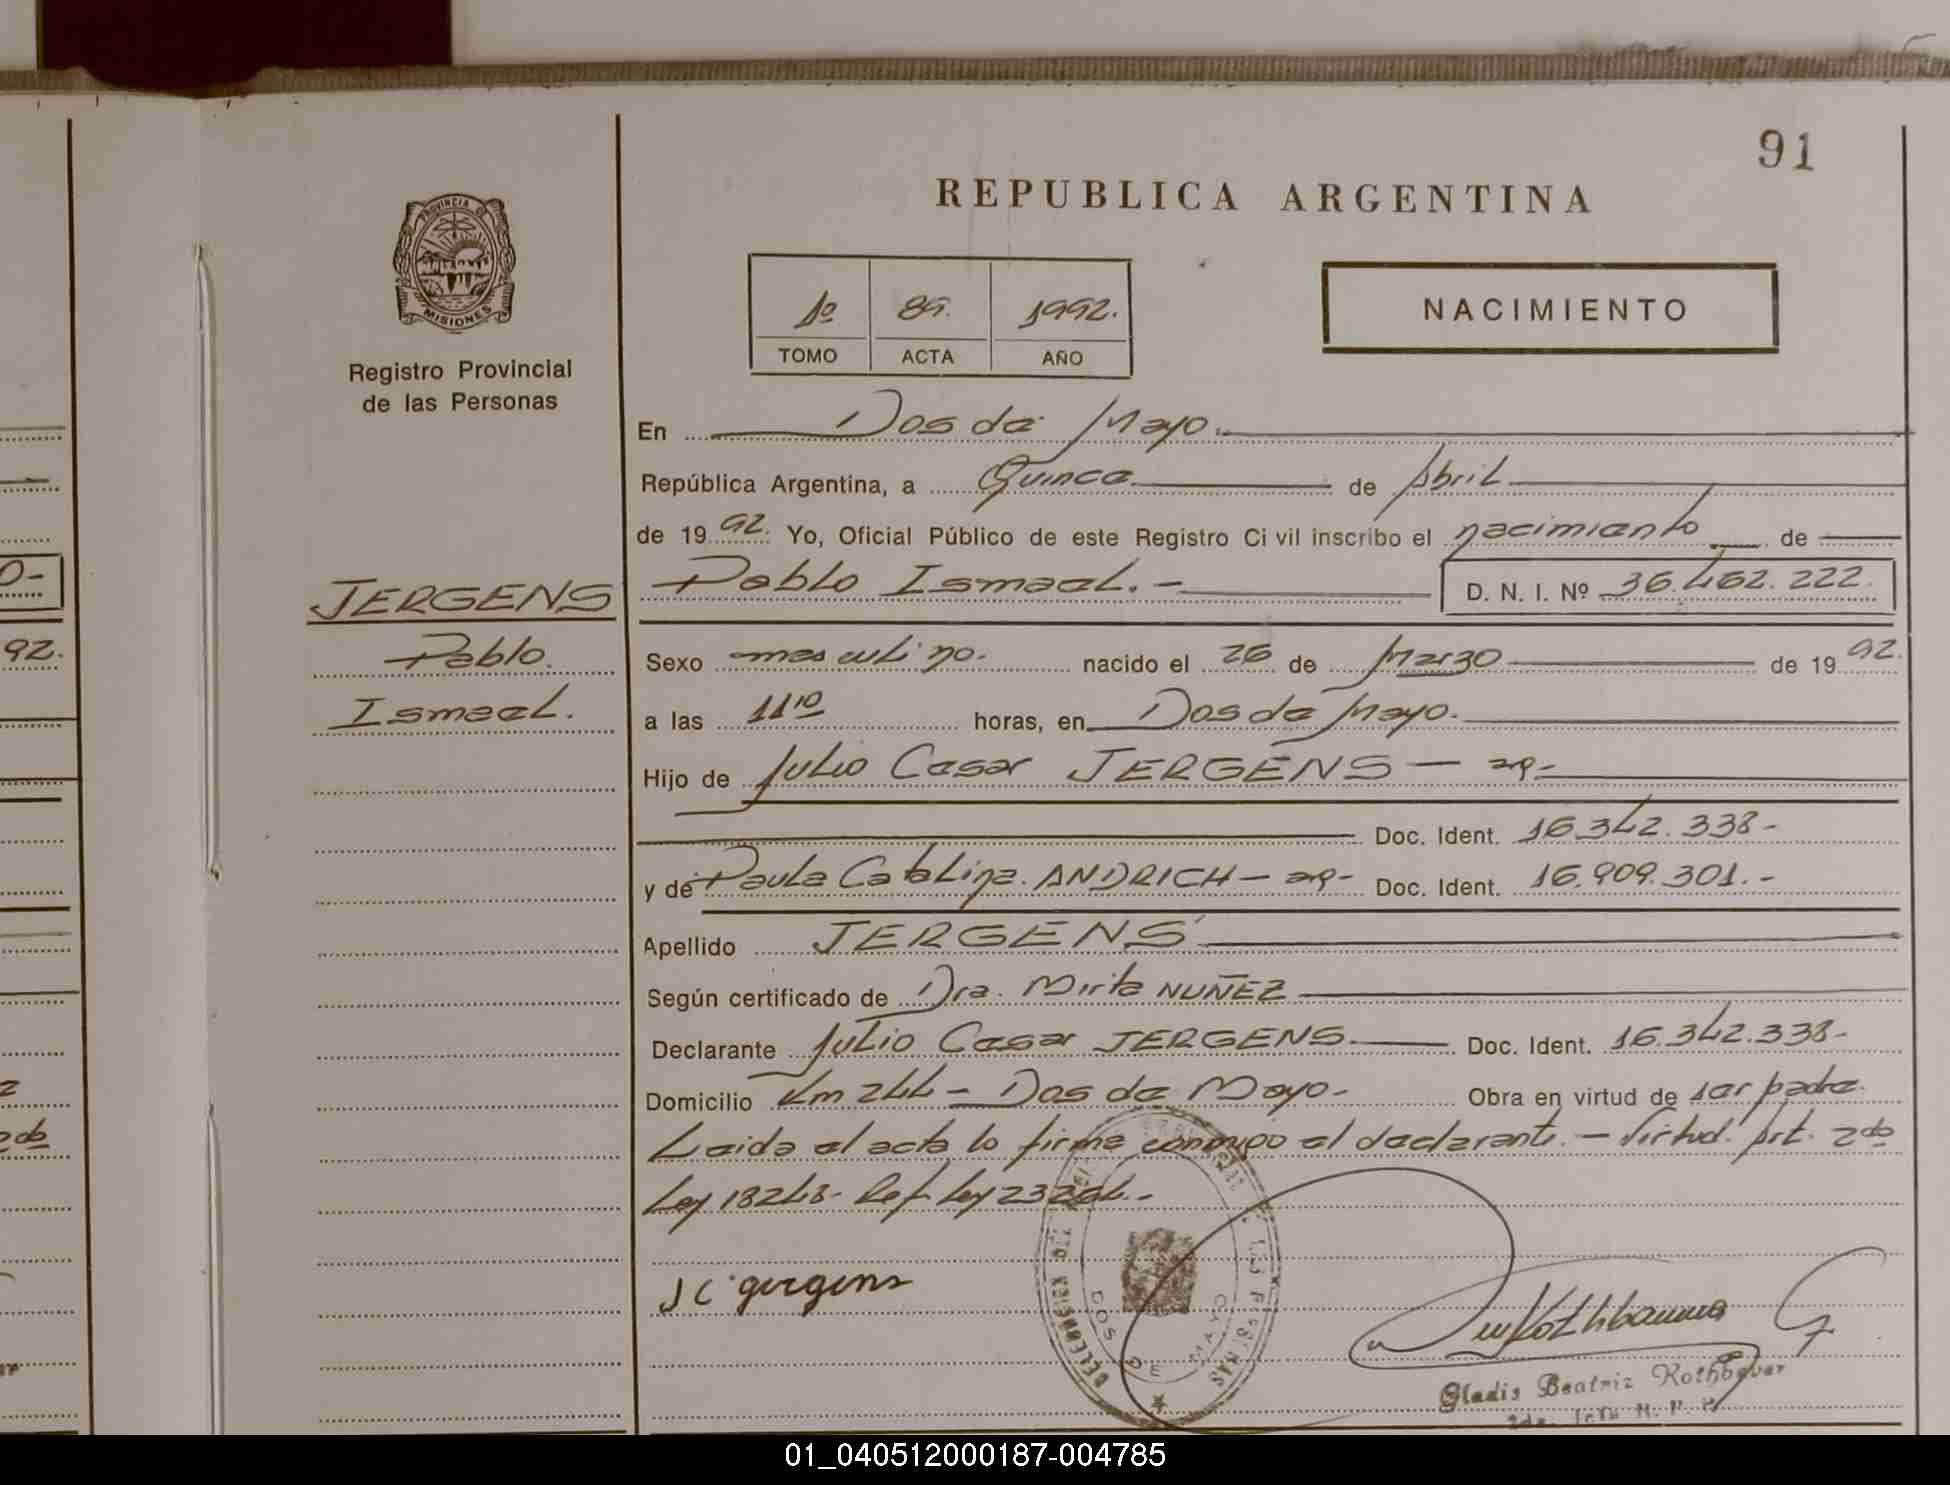 91
REPUBLICA ARGENTINA
PROVINCIA DE
MISIONES
Registro Provincial
de las Personas
1º 89. 1992.
TOMO ACTA AÑO
NACIMIENTO
En Dos de Mayo.
República Argentina, a Quince de Abril
de 1992. Yo, Oficial Público de este Registro Civil inscribo el nacimiento de
0-
JERGENS
Pablo Ismael.- D. N. I. Nº 36.462.222.
92.
Pablo
Sexo masculino. nacido el 26 de Marzo de 1992.
Ismael.
a las 11¹⁰ horas, en Dos de Mayo.
Hijo de Julio Cesar JERGENS - ar-
Doc. Ident. 16.342.338-
y de Paula Catalina. ANDRICH - ar- Doc. Ident. 16.909.301.-
Apellido JERGENS
Según certificado de Dra. Mirta NUÑEZ
Declarante Julio Cesar JERGENS. Doc. Ident. 16.342.338-
Domicilio Km 244 - Dos de Mayo- Obra en virtud de ser padre.
2do
Leida el acta lo firma conmigo el declarante. - Virtud. Art. 2do
Ley 18248- Ref. Ley 23264.-
J C gergens
DOS DE MAYO
Gladis Beatriz Rothbauer
01_040512000187-004785